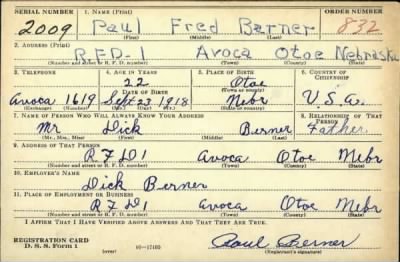 SERIAL NUMBER 1. NAME (Print) ORDER NUMBER
2009 Paul Fred Berner 832
(First) (Middle) (Last)
2. ADDRESS (Print)
RFD-1 Avoca Otoe Nebraska
(Number and street or R. F. D. number) (Town) (County) (State)
3. TELEPHONE 4. AGE IN YEARS 5. PLACE OF BIRTH 6. COUNTRY OF CITIZENSHIP
22 Otoe
DATE OF BIRTH (Town or county)
Avoca 1619 Sept 23 1918 Nebr U.S.A.
(Exchange) (Number) (Mo.) (Day) (Yr.) (State or country)
7. NAME OF PERSON WHO WILL ALWAYS KNOW YOUR ADDRESS 8. RELATIONSHIP OF THAT PERSON
Mr Dick Berner Father
(Mr., Mrs., Miss) (First) (Middle) (Last)
9. ADDRESS OF THAT PERSON
RFD1 Avoca Otoe Nebr
(Number and street or R. F. D. number) (Town) (County) (State)
10. EMPLOYER'S NAME
Dick Berner
11. PLACE OF EMPLOYMENT OR BUSINESS
RFD1 Avoca Otoe Nebr
(Number and street or R. F. D. number) (Town) (County) (State)
I AFFIRM THAT I HAVE VERIFIED ABOVE ANSWERS AND THAT THEY ARE TRUE.
REGISTRATION CARD
D. S. S. Form 1 (over) 16—17105 Paul Berner
(Registrant's signature)